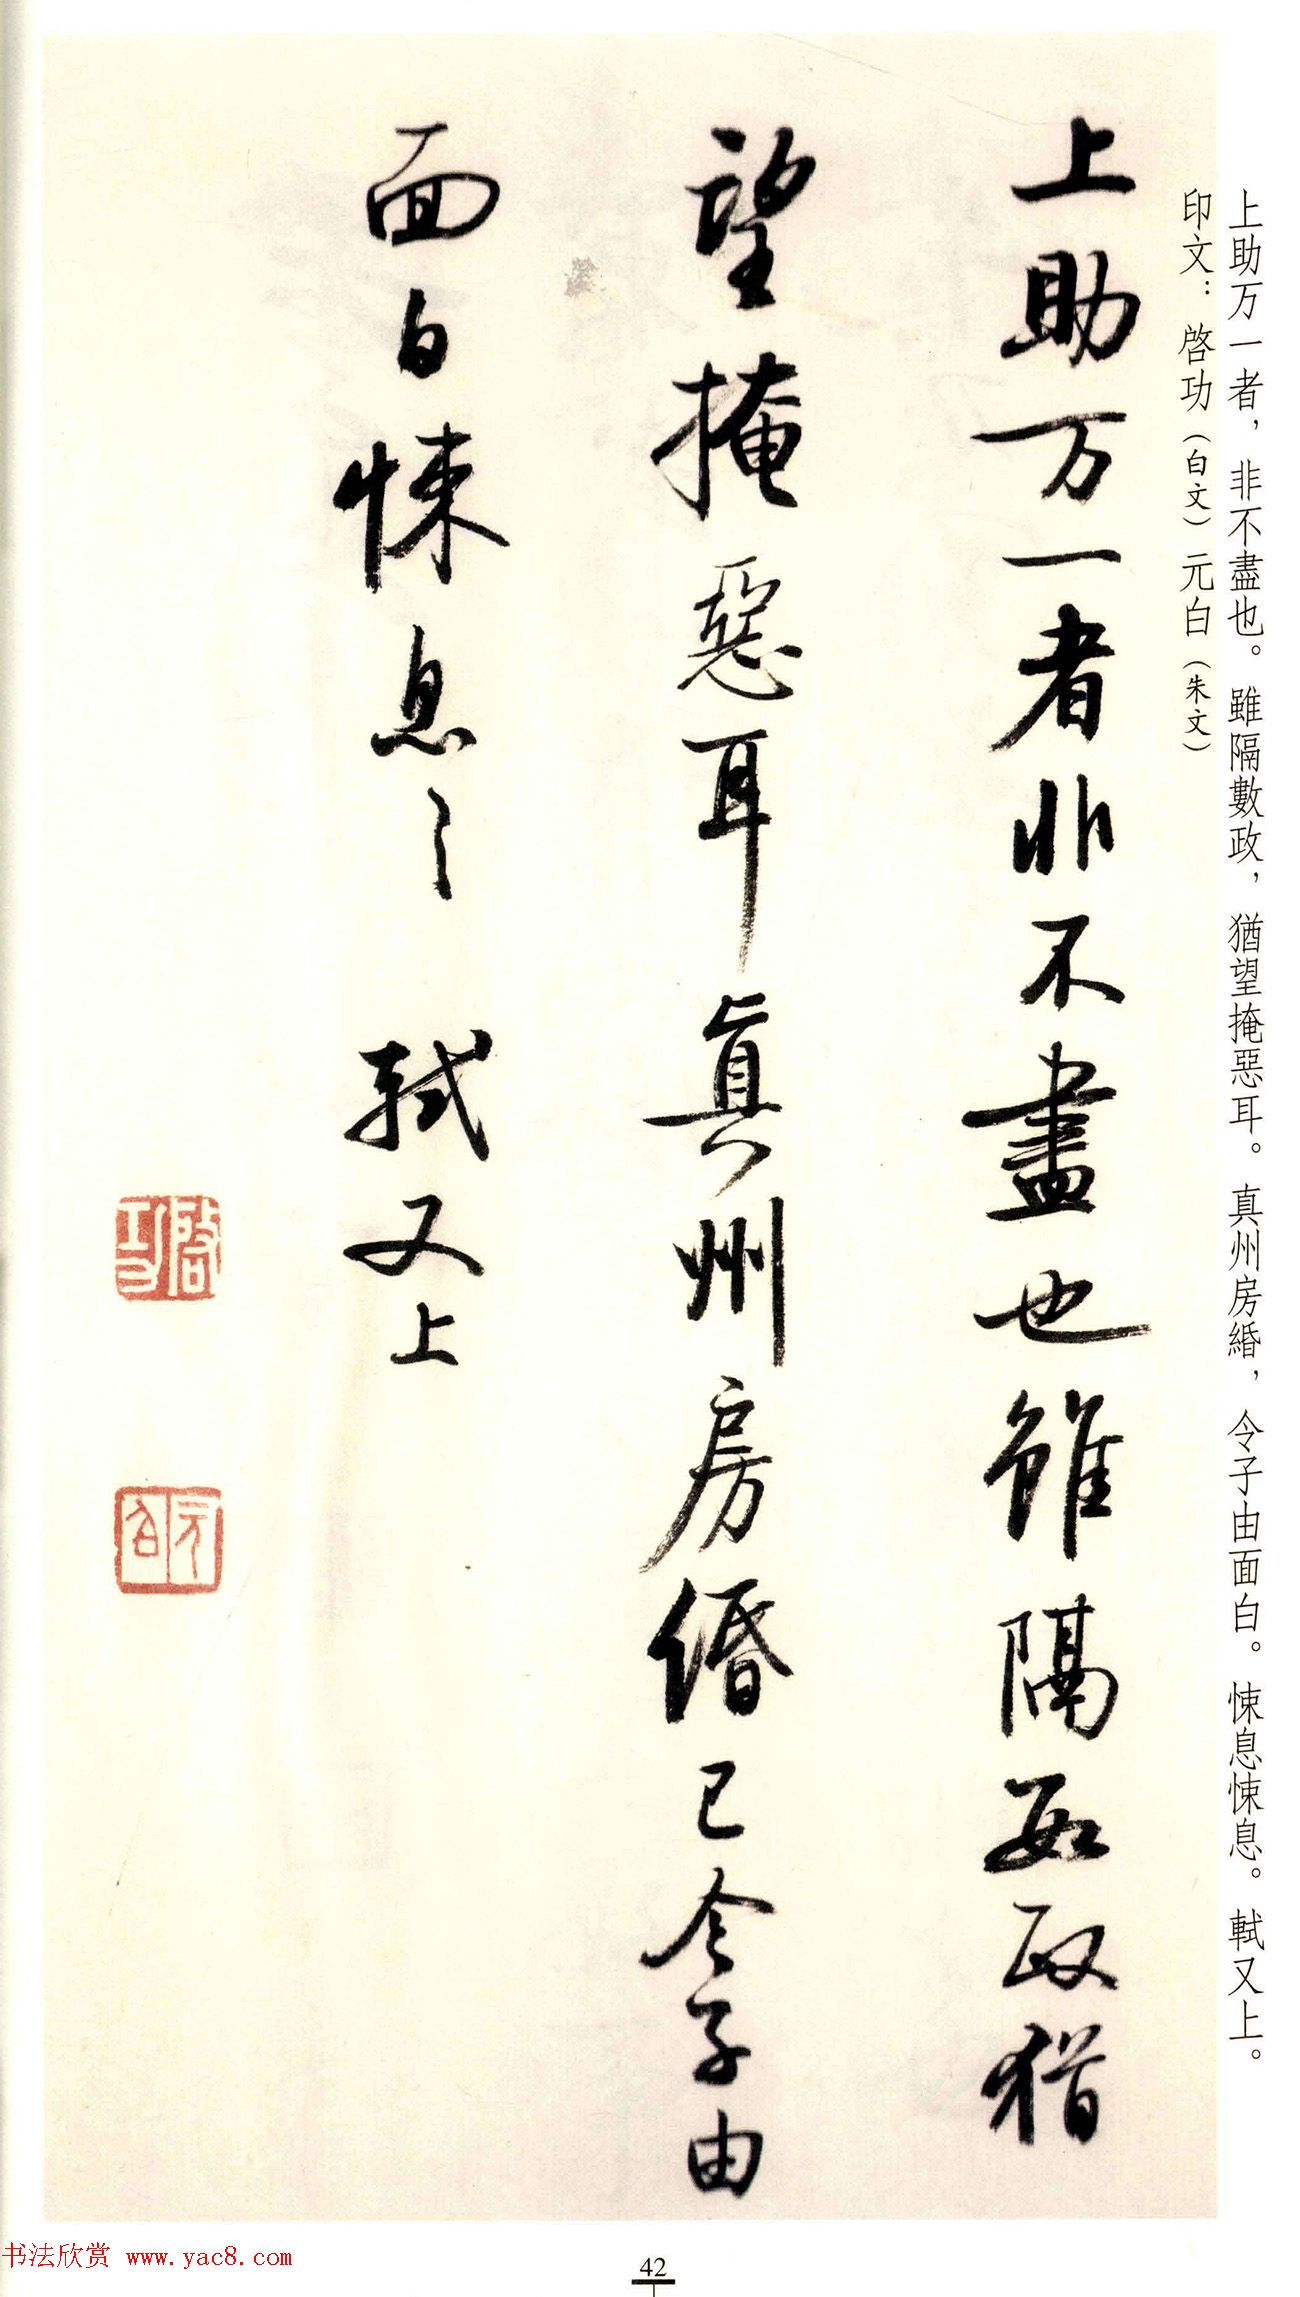 上助万一者，非不盡也。雖隔數政，猶望掩惡耳。真州房緡，令子由面白。悚息悚息。軾又上。
印文：啓功（白文）元白（朱文）
上助万一者非不盡也雖隔數政猶
望掩惡耳真州房緡已令子由
面白悚息〻軾又上
啓功
元白
书法欣赏 www.yac8.com
42